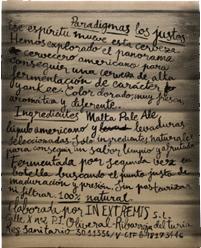 Paradigmas los justos
ese espíritu mueve esta cerveza.
Hemos explorado el panorama
cervecero americano para
conseguir una cerveza de alta
fermentación de carácter
yankee. Color dorado, muy
aromática y diferente.
Ingredientes Malta Pale Ale
lúpulo americano y levaduras
seleccionadas. Solo ingredientes naturales
para conseguir un sabor limpio y afrutado
Fermentada por segunda vez en
botella buscando el punto justo de
maduración y presión. Sin pasteurizar
ni filtrar. 100% natural.
Elaborada por IN EXTREMIS S.L.
Ribarroja del turia
Res Sanitario